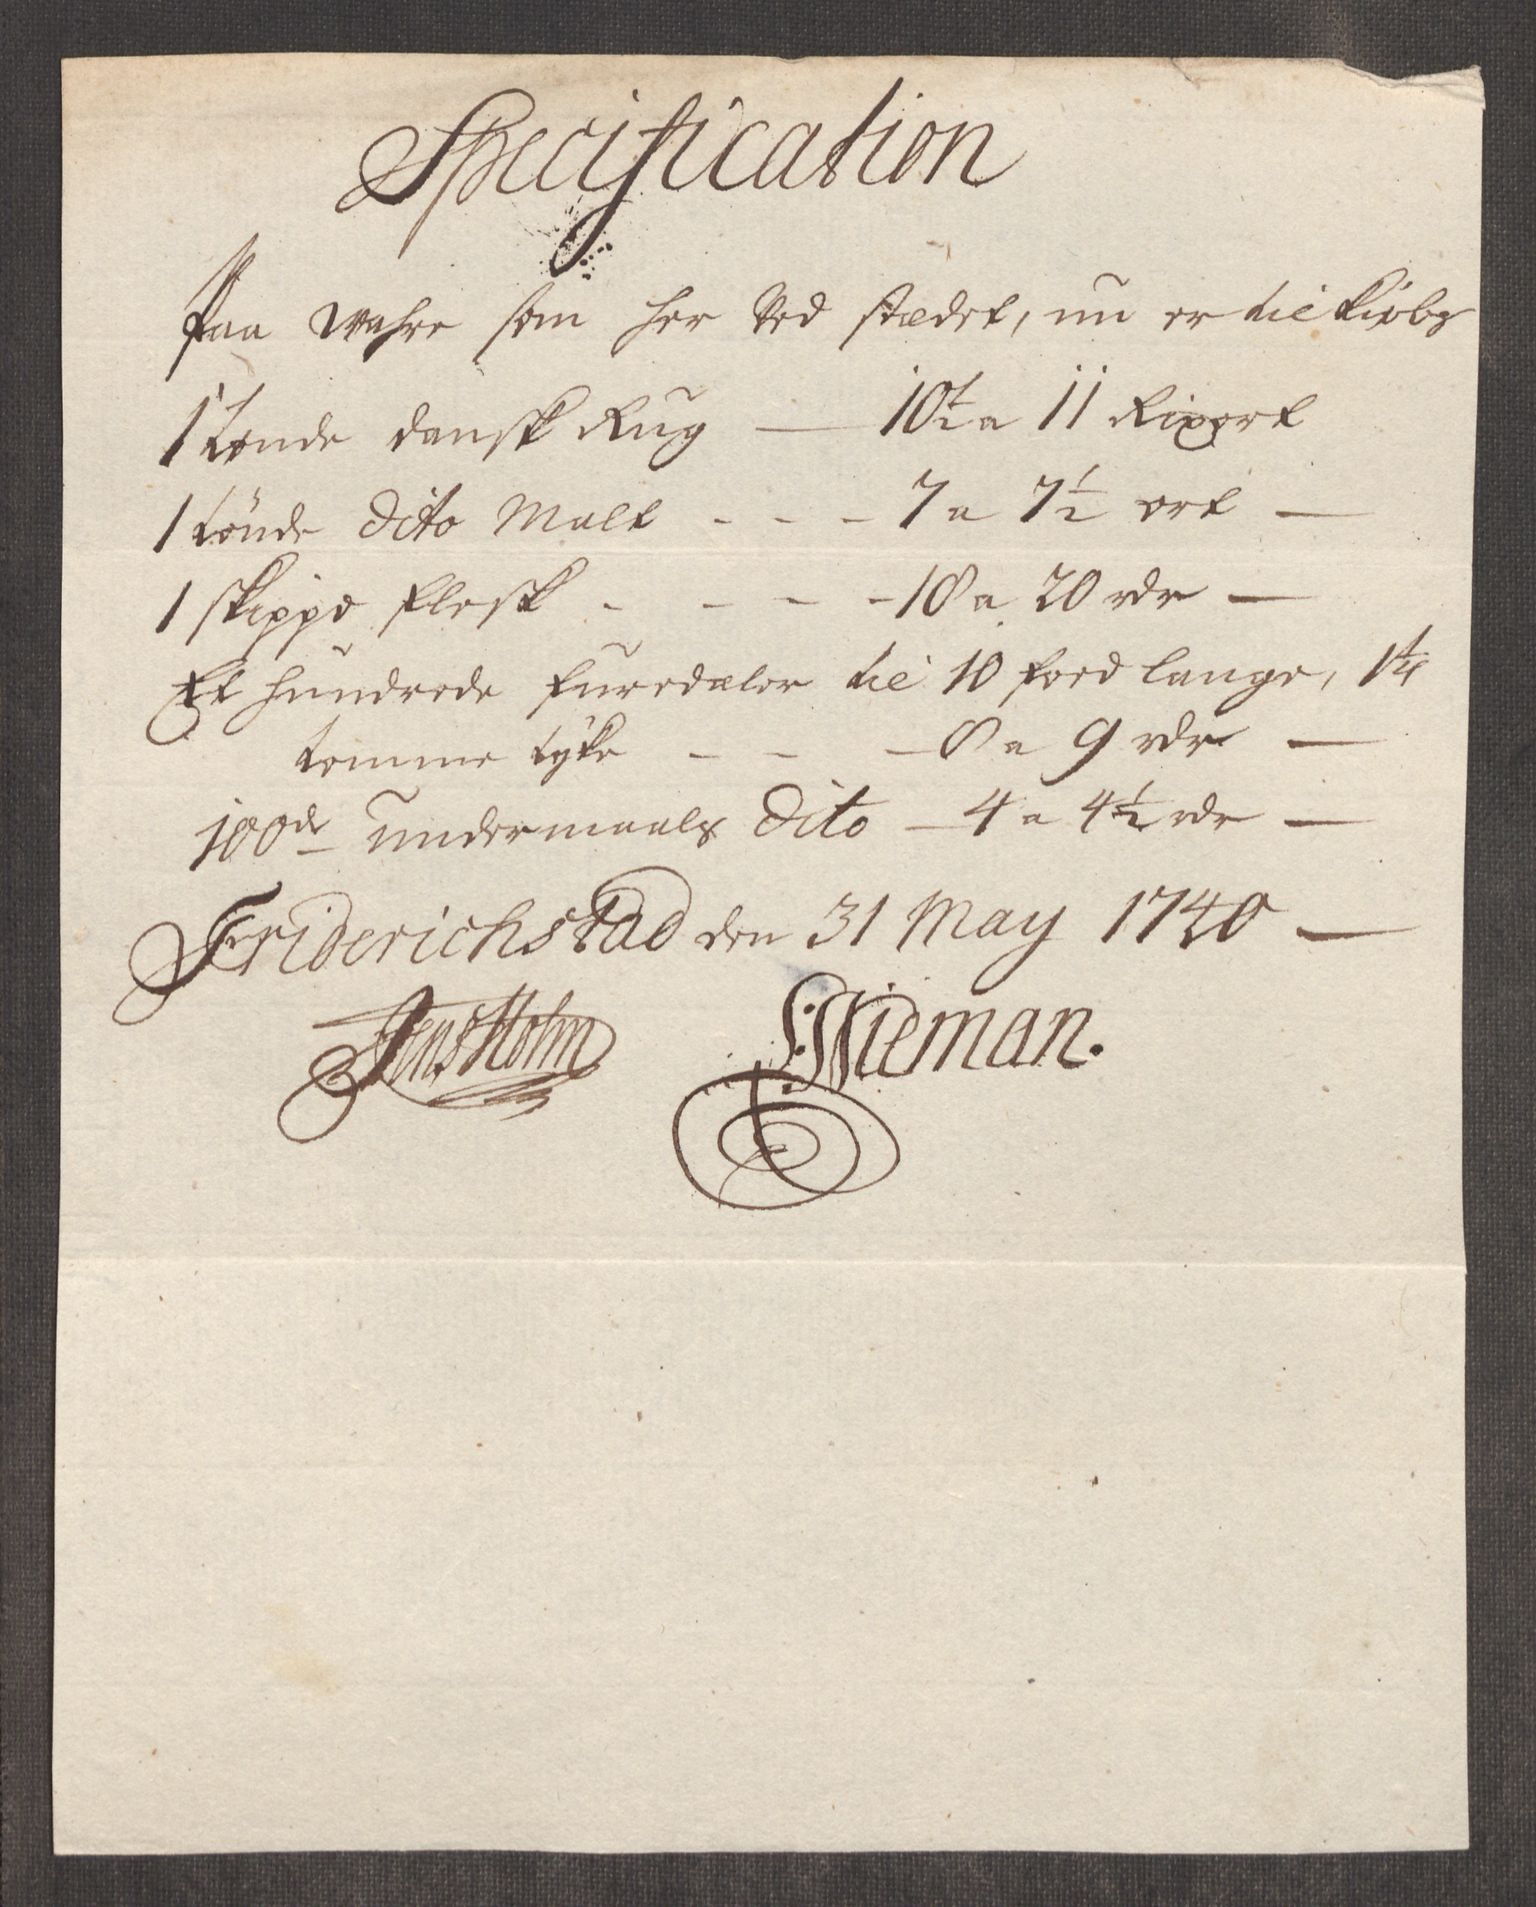 Specification
Paa wahre som her ved stædet, nu er til kiøbs
1 tønde dansk Rug — 10½ a 11 Rixort
1 tönde dito Malt - - - 7 a 7½ ort —
1 skippd flesk - - - - 18 a 20 rdr —
Et hundrede furedæler til 10 foed lange, 1¼
tomme tyke - - - 8 a 9 rdr —
100de undermaals dito — 4 a 4½ rdr —
Friderichstad den 31 May 1740 —
Jens Holm Wieman.